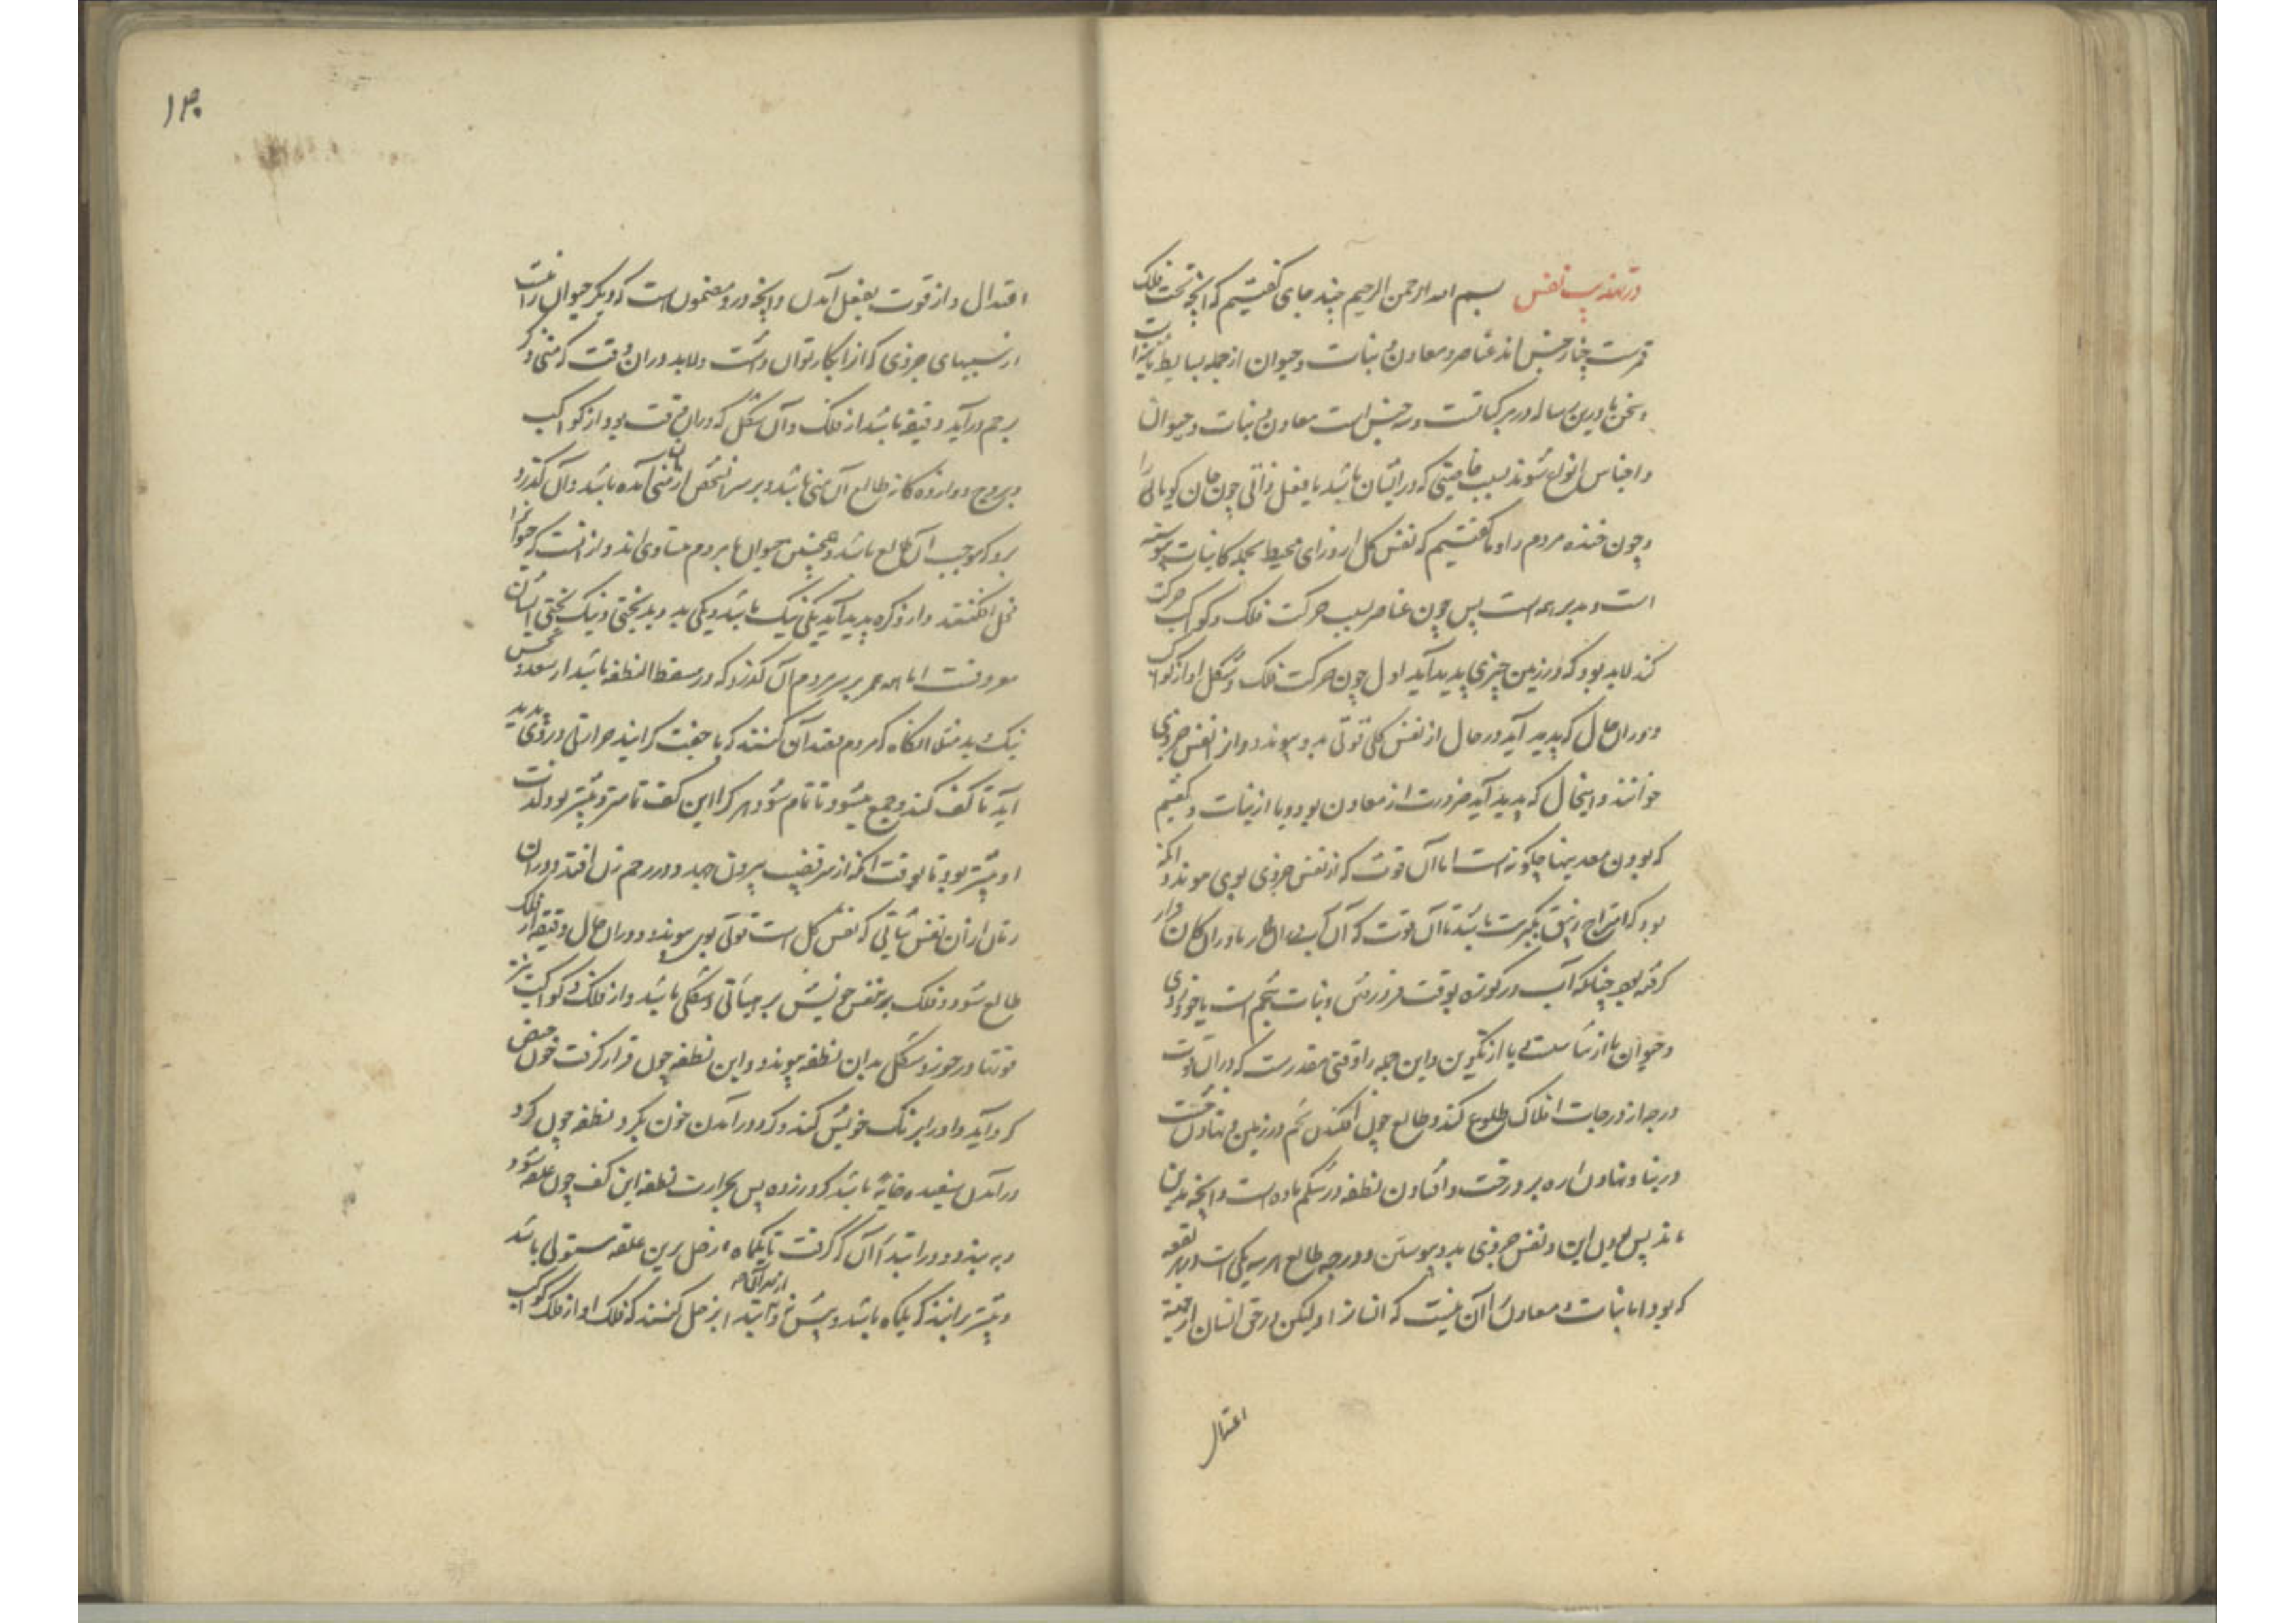 در تهذیب نفس بسم الله الرحمن الرحیم چند جای گفتیم که آنچه تحت فلک
قمرست چهار جنس اند عناصر و معادن و نبات و حیوان از جمله بسایط
و سخن ما درین رساله در مرکباتست و سه جنس است معادن و نبات و حیوان
و اجناس انواع شوند بسبب خاصیتی که در ایشان باشد یا بفعل ذاتی چون جان کویا
و چون خنده مردم را و ما گفتیم که نفس کل از ورای محیط بجمله کاینات پیوسته
است و مدبر همه است پس چون عناصر بسبب حرکت فلک و کواکب حرکت
کند لابد بود که در زمین چیزی پدید آید اول چون حرکت فلک و شکل او از کواکب
و دران حال که پدید آید در حال از نفس کلی قوتی بدو پیوندد و از نفس جزوی
خوانند و اینحال که پدید آید ضرورت از معادن بود و یا از نبات و گفتیم
که بودن معدنیها چگونه است اما آن قوت که از نفس جزوی بوی پیوندد
بود که امتزاج زیبق بکبریت باشد تا آن قوت که آن
گرفته بود چنانکه آب در کوزه بوقت فرو و نبات تخم است یا خود
و حیوان یا از تناسل یا از تکوین و این جمله را وقتی مقدرست که در آن وقت
درجه از درجات افلاک طلوع کند و طالع چون افکندن تخم در زمین و نهادن خشت
در بنا و نهادن اره بر درخت و افتادن نطفه در شکم ماده است و آنچه بدین
ماند پس بودن این و نفس جزوی بدو پیوستن و درجه طالع هر سه یکی است
که بود اما نبات و معادن را آن نیست که انسان را ولیکن در حق انسان
اعتدال
اعتدال و از قوت بفعل آمدن و آنچه درو مضمون است که دیگر حیوان را نیست
از نسبتهای جزوی که از انکار توان داشت و لابد دران وقت که منی ذکر
برحم درآید دقیقه باشد از فلک و آن شکل که دران وقت بود از کواکب
و بروج دوازده کانه طالع آن منی باشد و بر سر آن شخص ازان منی آمده باشد و آن گذرد
برو که بموجب آن طالع باشد و همچنین حیوان با مردم متساوی اند و ازانست که حیوانرا
فحل افکنند و از دو کره پدید آید یکی نیک باشد و یکی بد و بدبختی و نیک بختی ایشان
معروفست اما همه عمر بر سر مردم آن گذرد که در مسقط النطفه باشد از سعد و نحس
نیک و بد مثلا آنگاه که مردم قصد آن کنند که با جفت گرایند حرارتی درو پدید
آید تا کف کند و جمع میشود تا تمام شود و هر که را این کف تمامتر و بیشتر بود لذت
او بیشتر بود تا بوقت آنکه از سر قضیب بیرون جهد و در رحم زن افتد و دران
زمان ازان نفس نباتی که نفس کل است قوتی بوی پیوندد و دران حال دقیقه از فلک
طالع شود و فلک بر نفس خویش بر هیأتی و شکلی باشد و از فلک و کواکب نیز
قوتها در خور و شکل بدان نطفه پیوندد و این نطفه چون قرار گرفت خون حیض
گرد آید و او را برنگ خویش کند و گرد درآمدن خون بگرد نطفه چون گرد
درآمدن سفیده خایه باشد گرد زرده پس بحرارت نطفه این کف چون علقه شود
و به بندد و در ابتدا آن که گرفت تا یکماه زحل برین علقه مستولی باشد
و بیشتر برانند که یکماه باشد و پیش و ابتدا از زحل کنند که فلک او از فلک کواکب
از هر آنکه